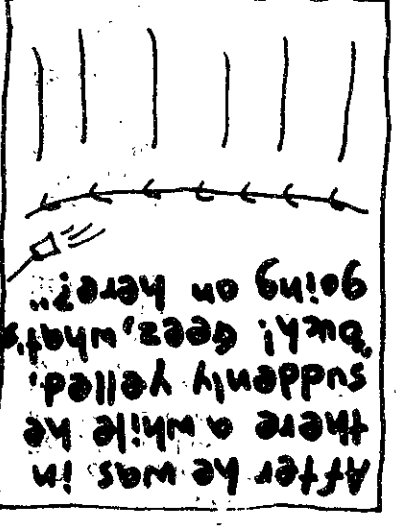 After he was in
there a while he
suddenly yelled,
"ouch! Geez, what's
going on here?"